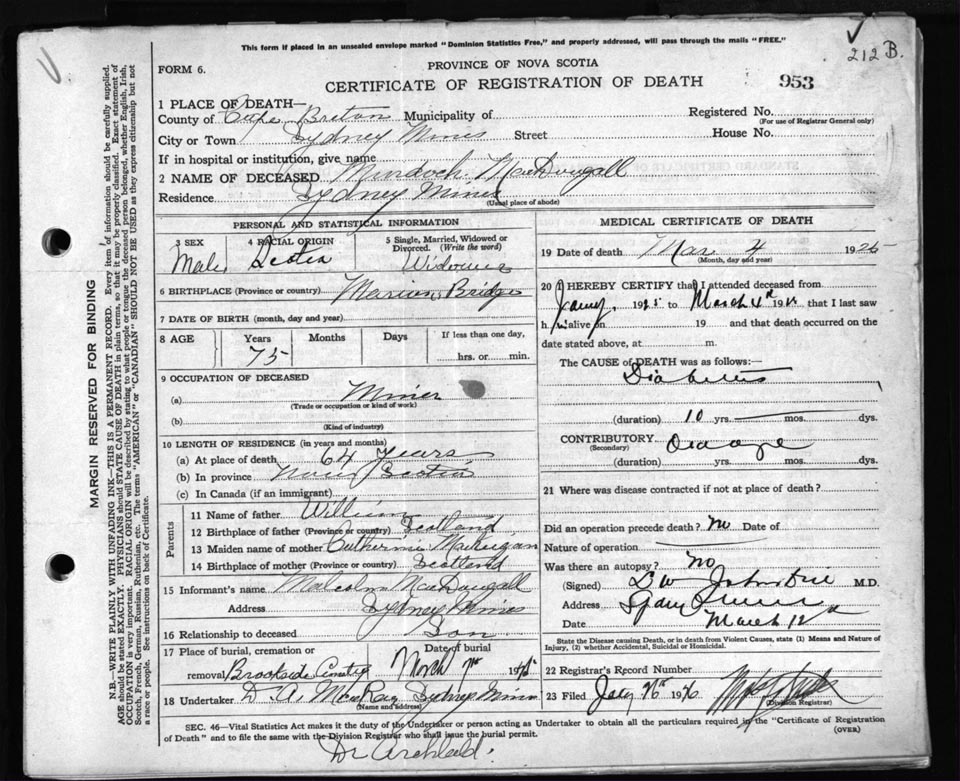 This form if placed in an unsealed envelope marked "Dominion Statistics Free," and properly addressed, will pass through the mails "FREE."
212 B.
FORM 6.
PROVINCE OF NOVA SCOTIA
CERTIFICATE OF REGISTRATION OF DEATH
953
1 PLACE OF DEATH—
County of Cape Breton Municipality of
Registered No.
(For use of Registrar General only)
City or Town Sydney Mines Street House No.
If in hospital or institution, give name
2 NAME OF DECEASED Murdoch MacDougall
Residence Sydney Mines
(Usual place of abode)
PERSONAL AND STATISTICAL INFORMATION
3 SEX
Male
4 RACIAL ORIGIN
Scotch
5 Single, Married, Widowed or Divorced. (Write the word)
6 BIRTHPLACE (Province or country) Marion Bridge
7 DATE OF BIRTH (month, day and year)
8 AGE Years Months Days If less than one day,
75 hrs. or min.
9 OCCUPATION OF DECEASED
(a) Miner
(Trade or occupation or kind of work)
(b)
(Kind of industry)
10 LENGTH OF RESIDENCE (in years and months)
(a) At place of death 64 years
(b) In province Nova Scotia
(c) In Canada (if an immigrant)
Parents
11 Name of father William
12 Birthplace of father (Province or country) Scotland
13 Maiden name of mother Catherine
14 Birthplace of mother (Province or country) Scotland
15 Informant's name Malcolm MacDougall
Address Sydney Mines
16 Relationship to deceased Son
17 Place of burial, cremation or removal Date of burial
Brookside 19
18 Undertaker D. A. MacRae Sydney Mines
(Name and address)
MEDICAL CERTIFICATE OF DEATH
19 Date of death Mar 4 1926
(Month, day and year)
20 I HEREBY CERTIFY that I attended deceased from
19 to March 4th 19 that I last saw
h im alive on 19 and that death occurred on the
date stated above, at m.
The CAUSE of DEATH was as follows:—
Diabetes
(duration) 10 yrs. mos. dys.
CONTRIBUTORY Old age
(Secondary)
(duration) yrs. mos. dys.
21 Where was disease contracted if not at place of death?
Did an operation precede death? no Date of
Nature of operation
Was there an autopsy? no
(Signed) M.D.
Address
Date March 12
State the Disease causing Death, or in death from Violent Causes, state (1) Means and Nature of Injury, (2) whether Accidental, Suicidal or Homicidal.
22 Registrar's Record Number
23 Filed 19
(Division Registrar)
SEC. 46—Vital Statistics Act makes it the duty of the Undertaker or person acting as Undertaker to obtain all the particulars required in the "Certificate of Registration
of Death" and to file the same with the Division Registrar who shall issue the burial permit.
(OVER)
Dr Archibald.
MARGIN RESERVED FOR BINDING
N.B.—WRITE PLAINLY WITH UNFADING INK—THIS IS A PERMANENT RECORD. Every item of information should be carefully supplied.
AGE should be stated EXACTLY. PHYSICIANS should STATE CAUSE OF DEATH in plain terms, so that it may be properly classified. Exact statement of
OCCUPATION is very important. RACIAL ORIGIN will be described by stating to what people or tongue the deceased person belonged, whether English, Irish,
Scotch, French, German, Russian, Ruthenian, etc. The terms "AMERICAN" or "CANADIAN" SHOULD NOT BE USED as they express citizenship but not
a race or people. See instructions on back of Certificate.